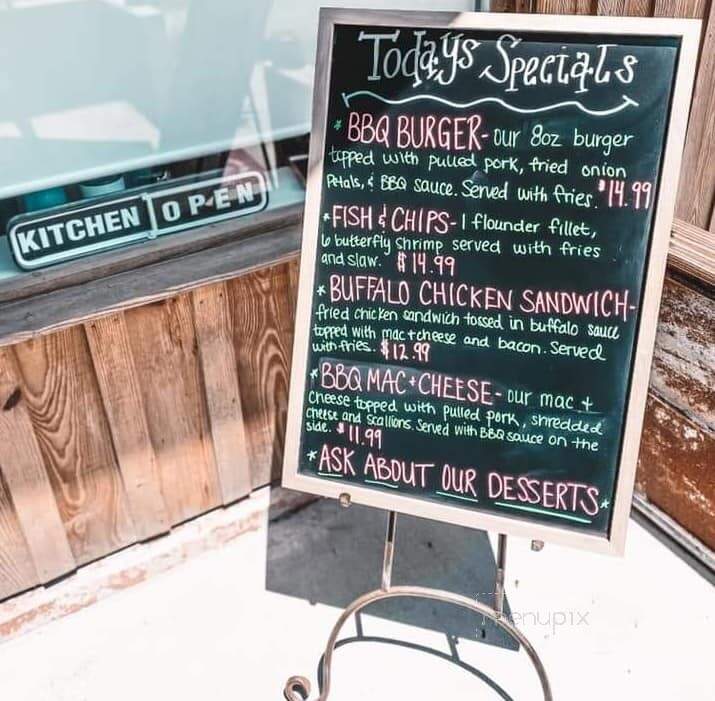 Todays Specials
* BBQ BURGER- our 8oz burger
topped with pulled pork, fried onion
Petals, & BBQ sauce. Served with fries. $14.99
* FISH & CHIPS- 1 flounder fillet,
6 butterfly shrimp served with fries
and slaw. $14.99
* BUFFALO CHICKEN SANDWICH-
fried chicken sandwich tossed in buffalo sauce
topped with mac+cheese and bacon. Served
with fries. $12.99
* BBQ MAC+CHEESE- our mac +
cheese topped with pulled pork, shredded
cheese and scallions. Served with BBQ sauce on the
side. $11.99
* ASK ABOUT OUR DESSERTS *
KITCHEN OPEN
menupix